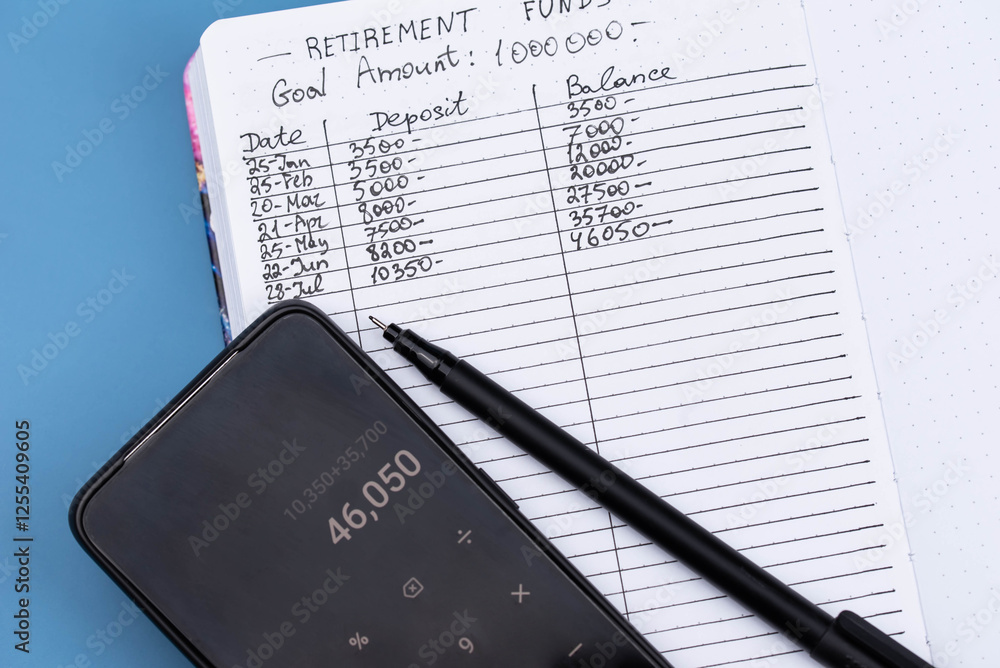 — RETIREMENT FUNDS
Goal Amount: 1000000-
Date Deposit Balance
25-Jan 3500- 3500-
25-Feb 3500- 7000-
20-Mar 5000- 12000-
21-Apr 8000- 20000-
25-May 7500- 27500-
22-Jun 8200- 35700-
28-Jul 10350- 46050-
10,350+35,700
46,050
÷
+
%
9
=
Adobe Stock | #1255409605
Adobe Stock